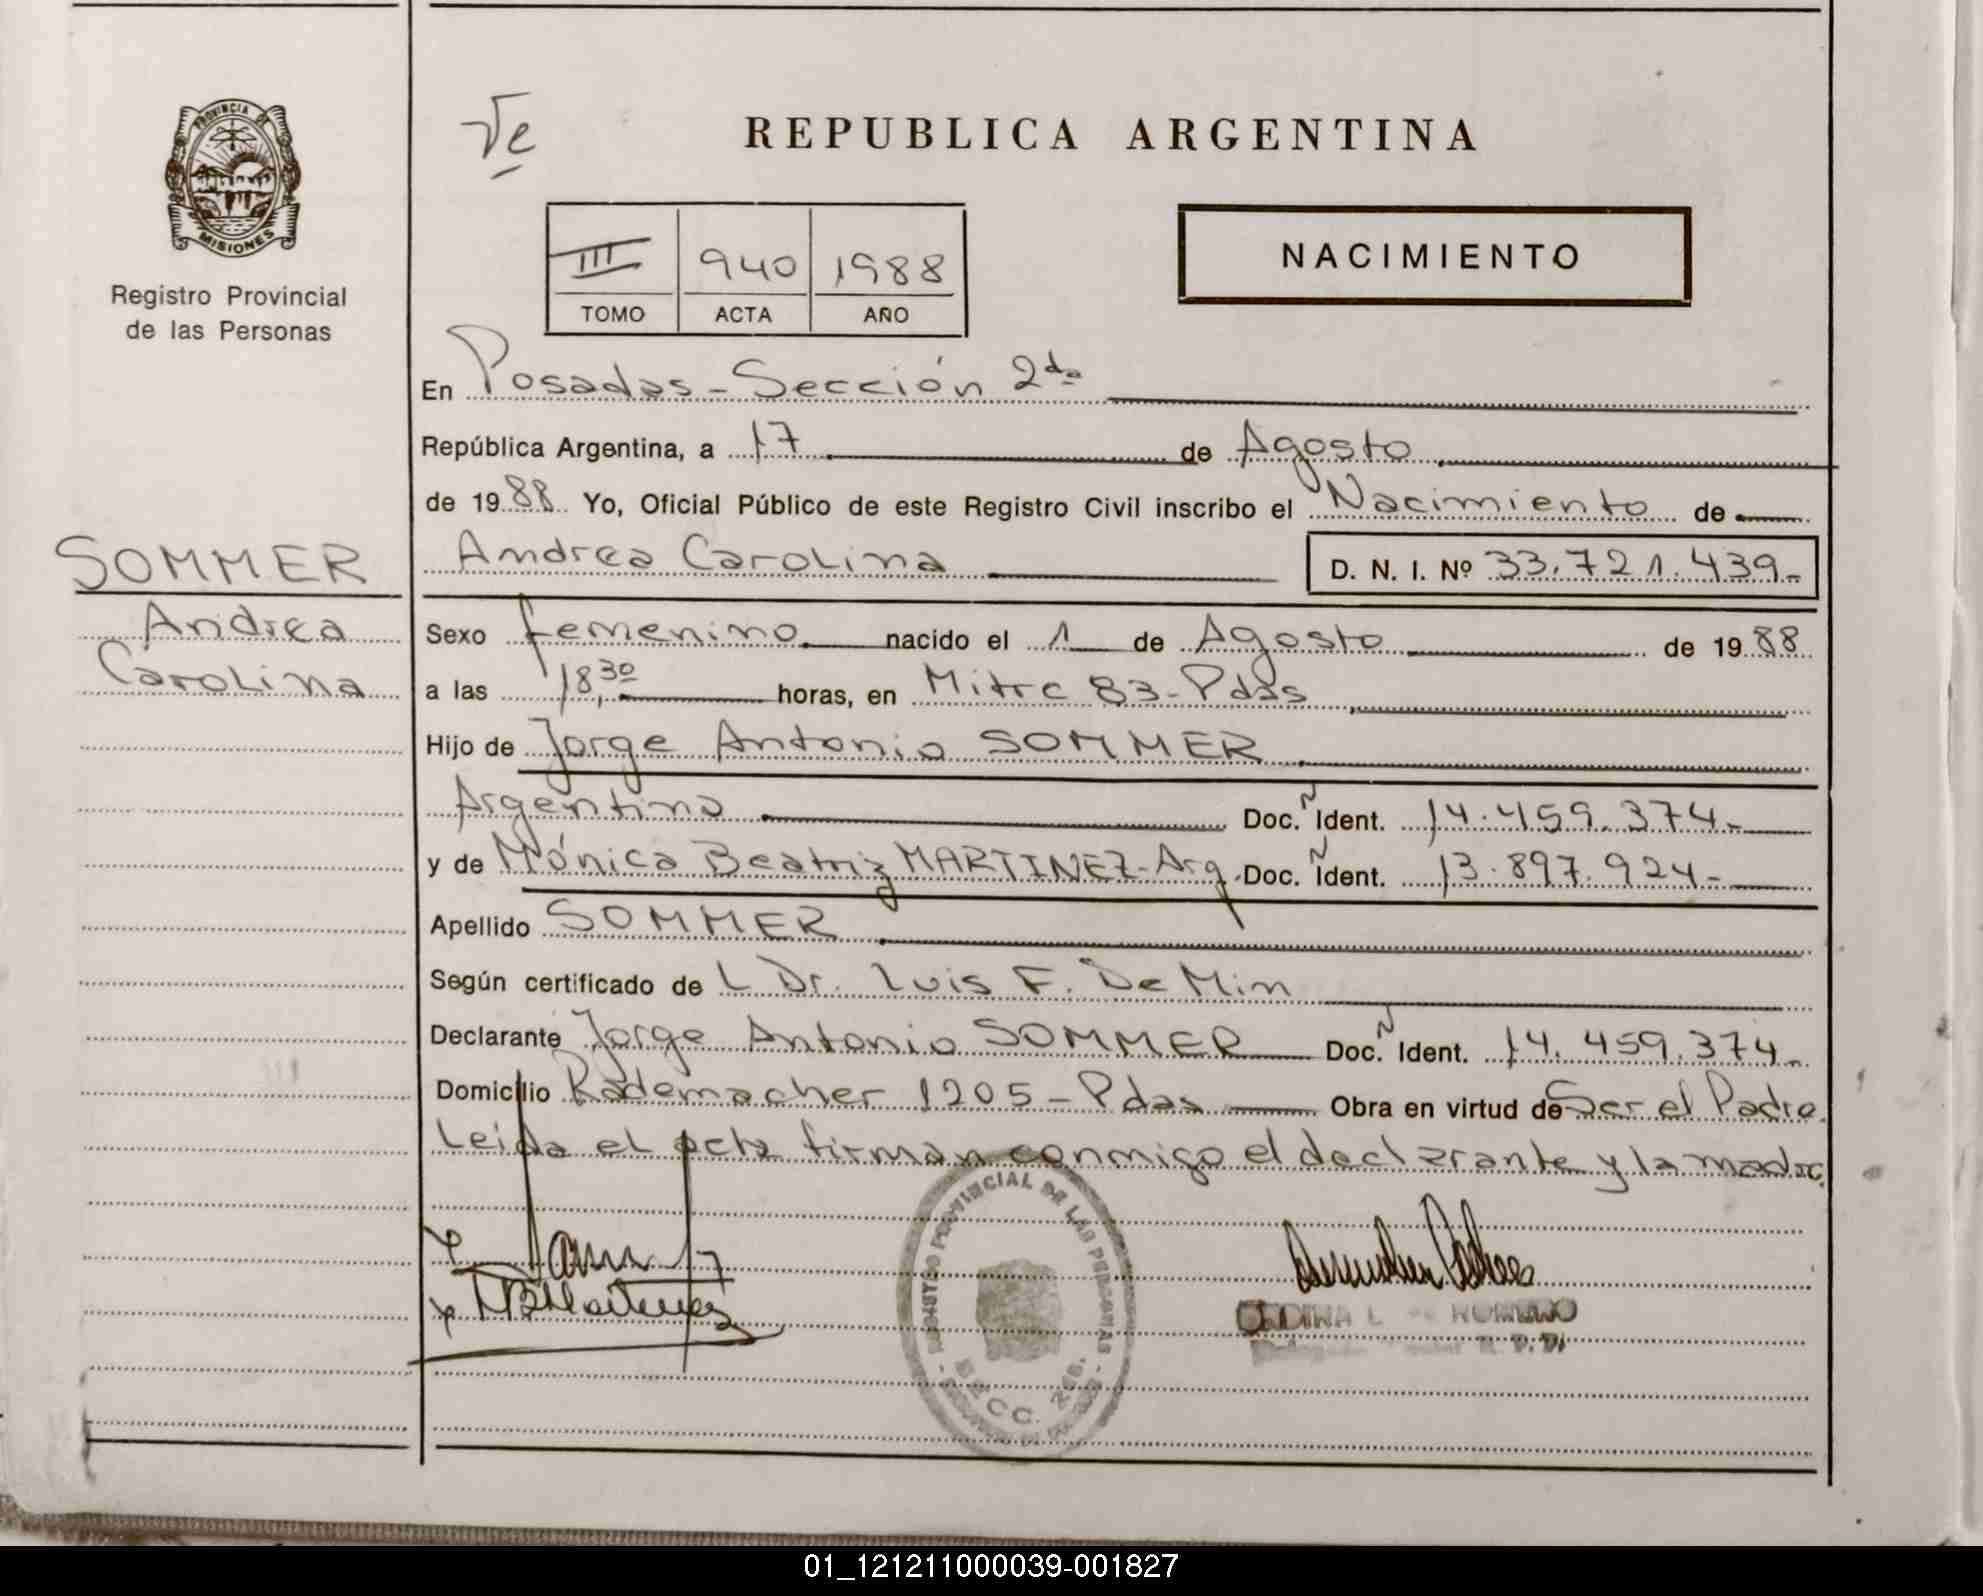 PROVINCIA DE
MISIONES
Registro Provincial
de las Personas
SOMMER
Andrea
Carolina
Ve
REPUBLICA ARGENTINA
III 940 1988
TOMO ACTA AÑO
NACIMIENTO
En Posadas - Sección 2da
República Argentina, a 17 de Agosto
de 1988 Yo, Oficial Público de este Registro Civil inscribo el Nacimiento de
Andrea Carolina D. N. I. Nº 33.721.439-
Sexo femenino nacido el 1 de Agosto de 1988
a las 18,30 horas, en Mitre 83 - Pdas
Hijo de Jorge Antonio SOMMER
Argentino Doc. Ident. 14.459.374-
y de Mónica Beatriz MARTINEZ - Arg. Doc. Ident. 13.897.924-
Apellido SOMMER
Según certificado de L Dr. Luis F. De Min
Declarante Jorge Antonio SOMMER Doc. Ident. 14.459.374-
Domicilio Rademacher 1205 - Pdas Obra en virtud de Ser el Padre.
Leida el acta firman conmigo el declarante y la madre.
REGISTRO PROVINCIAL DE LAS PERSONAS
SECC. 2da.
01_121211000039-001827